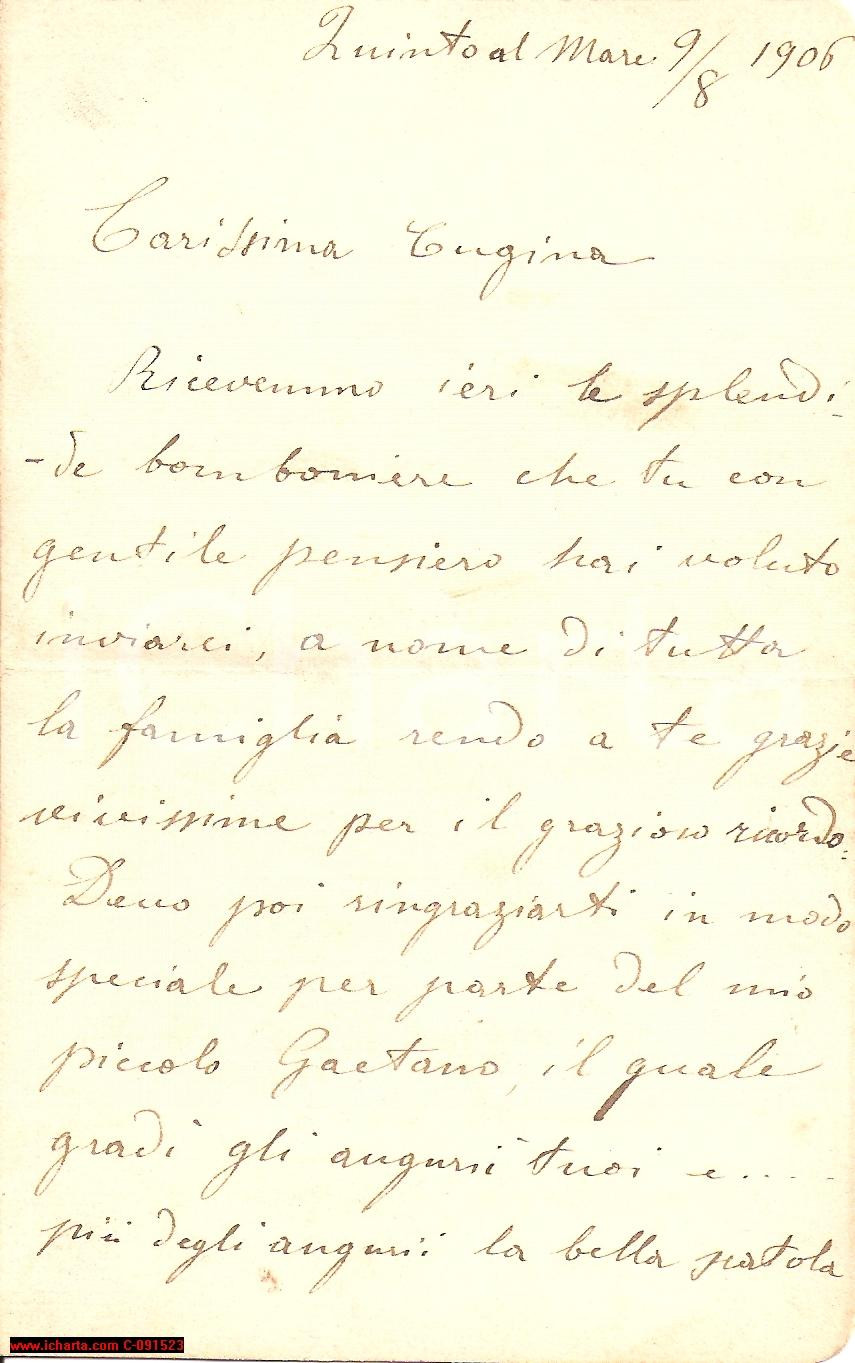 Quinto al Mare 9/8 1906
Carissima Cugina
Ricevemmo ieri le splendi-
-de bomboniere che tu con
gentile pensiero hai voluto
inviarci, a nome di tutta
la famiglia rendo a te grazie
vivissime per il grazioso ricordo.
Devo poi ringraziarti in modo
speciale per parte del mio
piccolo Gaetano, il quale
gradì gli augurii tuoi e....
più degli augurii la bella
www.icharta.com C-091523